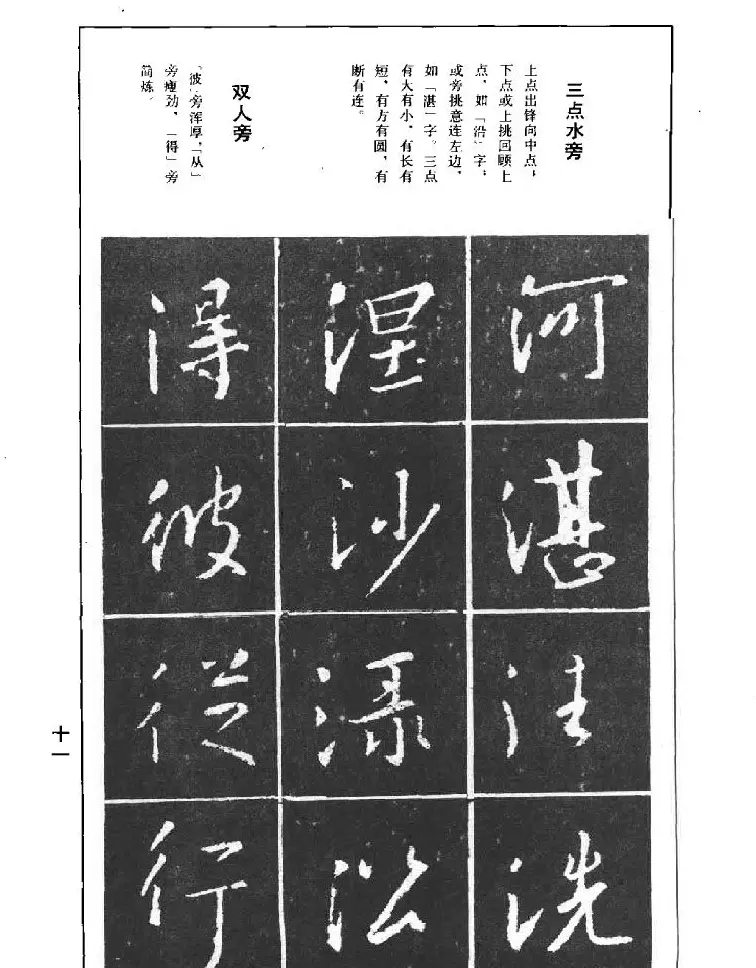 三点水旁
上点出锋向中点，
下点或上挑回顾上
点，如「沿」字，
或旁挑意连左边，
如「湛」字。三点
有大有小，有长有
短，有方有圆，有
断有连。
双人旁
「彼」旁浑厚，「从」
旁瘦劲，「得」旁
简炼。
河
湛
注
洗
涅
沙
源
沿
得
彼
從
行
十一